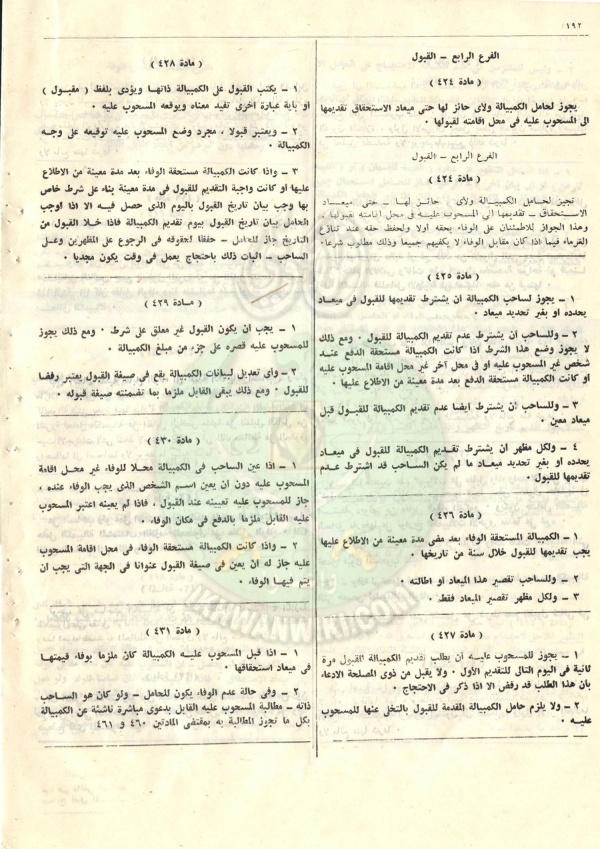 ١٩٢
الفرع الرابع – القبول
( مادة ٤٢٤ )
يجوز لحامل الكمبيالة ولأى حائز لها حتى ميعاد الاستحقاق تقديمها
الى المسحوب عليه فى محل اقامته لقبولها ٠
الفرع الرابع – القبول
( مادة ٤٢٤ )
تجيز لحامل الكمبيالة ولأى حائز لها – حتى ميعاد
الاستحقاق – تقديمها الى المسحوب عليه فى محل اقامته لقبولها ،
وهذا الجواز للاطمئنان على الوفاء بحقه اولا ولحفظ حقه عند تنازع
الغرماء فيما اذا كان مقابل الوفاء لا يكفيهم جميعا وذلك مطلوب شرعا ٠
( مادة ٤٢٥ )
١ – يجوز لساحب الكمبيالة ان يشترط تقديمها للقبول فى ميعاد
يحدده او بغير تحديد ميعاد ٠
٢ – وللساحب ان يشترط عدم تقديم الكمبيالة للقبول ٠ ومع ذلك
لا يجوز وضع هذا الشرط اذا كانت الكمبيالة مستحقة الدفع عند
شخص غير المسحوب عليه او فى محل آخر غير محل اقامة المسحوب عليه
او كانت الكمبيالة مستحقة الدفع بعد مدة معينة من الاطلاع عليها ٠
٣ – وللساحب ان يشترط ايضا عدم تقديم الكمبيالة للقبول قبل
ميعاد معين ٠
٤ – ولكل مظهر ان يشترط تقديم الكمبيالة للقبول فى ميعاد
يحدده او بغير تحديد ميعاد ما لم يكن الساحب قد اشترط عدم
تقديمها للقبول ٠
( مادة ٤٢٦ )
١ – الكمبيالة المستحقة الوفاء بعد مضى مدة معينة من الاطلاع عليها
يجب تقديمها للقبول خلال سنة من تاريخها ٠
٢ – وللساحب تقصير هذا الميعاد او اطالته ٠
٣ – ولكل مظهر تقصير الميعاد فقط ٠
( مادة ٤٢٧ )
١ – يجوز للمسحوب عليه ان يطلب تقديم الكمبيالة للقبول مرة
ثانية فى اليوم التالى للتقديم الأول ٠ ولا يقبل من ذوى المصلحة الادعاء
بأن هذا الطلب قد رفض الا اذا ذكر فى الاحتجاج ٠
٢ – ولا يلزم حامل الكمبيالة المقدمة للقبول بالتخلى عنها للمسحوب
عليه ٠
( مادة ٤٢٨ )
١ – يكتب القبول على الكمبيالة ذاتها ويؤدى بلفظ ( مقبول )
او باية عبارة اخرى تفيد معناه ويوقعه المسحوب عليه ٠
٢ – ويعتبر قبولا ، مجرد وضع المسحوب عليه توقيعه على وجه
الكمبيالة ٠
٣ – واذا كانت الكمبيالة مستحقة الوفاء بعد مدة معينة من الاطلاع
عليها او كانت واجبة التقديم للقبول فى مدة معينة بناء على شرط خاص
بها وجب بيان تاريخ القبول باليوم الذى حصل فيه الا اذا اوجب
الحامل بيان تاريخ القبول بيوم تقديم الكمبيالة فاذا خلا القبول من
التاريخ جاز للحامل – حفظا لحقوقه فى الرجوع على المظهرين وعلى
الساحب – اثبات ذلك باحتجاج يعمل فى وقت يكون مجديا ٠
( مادة ٤٢٩ )
١ – يجب ان يكون القبول غير معلق على شرط ٠ ومع ذلك يجوز
للمسحوب عليه قصره على جزء من مبلغ الكمبيالة ٠
٢ – وأى تعديل لبيانات الكمبيالة يقع فى صيغة القبول يعتبر رفضا
للقبول ٠ ومع ذلك يبقى القابل ملزما بما تضمنته صيغة قبوله ٠
( مادة ٤٣٠ )
١ – اذا عين الساحب فى الكمبيالة محلا للوفاء غير محل اقامة
المسحوب عليه دون ان يعين اسم الشخص الذى يجب الوفاء عنده ،
جاز للمسحوب عليه تعيينه عند القبول ، فاذا لم يعينه اعتبر المسحوب
عليه القابل ملزما بالدفع فى مكان الوفاء ٠
٢ – واذا كانت الكمبيالة مستحقة الوفاء فى محل اقامة المسحوب
عليه جاز له ان يعين فى صيغة القبول عنوانا فى الجهة التى يجب ان
يتم فيها الوفاء ٠
( مادة ٤٣١ )
١ – اذا قبل المسحوب عليه الكمبيالة كان ملزما بوفاء قيمتها
فى ميعاد استحقاقها ٠
٢ – وفى حالة عدم الوفاء يكون للحامل – ولو كان هو الساحب
ذاته – مطالبة المسحوب عليه القابل بدعوى مباشرة ناشئة عن الكمبيالة
بكل ما تجوز المطالبة به بمقتضى المادتين ٤٦٠ و ٤٦١
IKHWANWIKI.COM